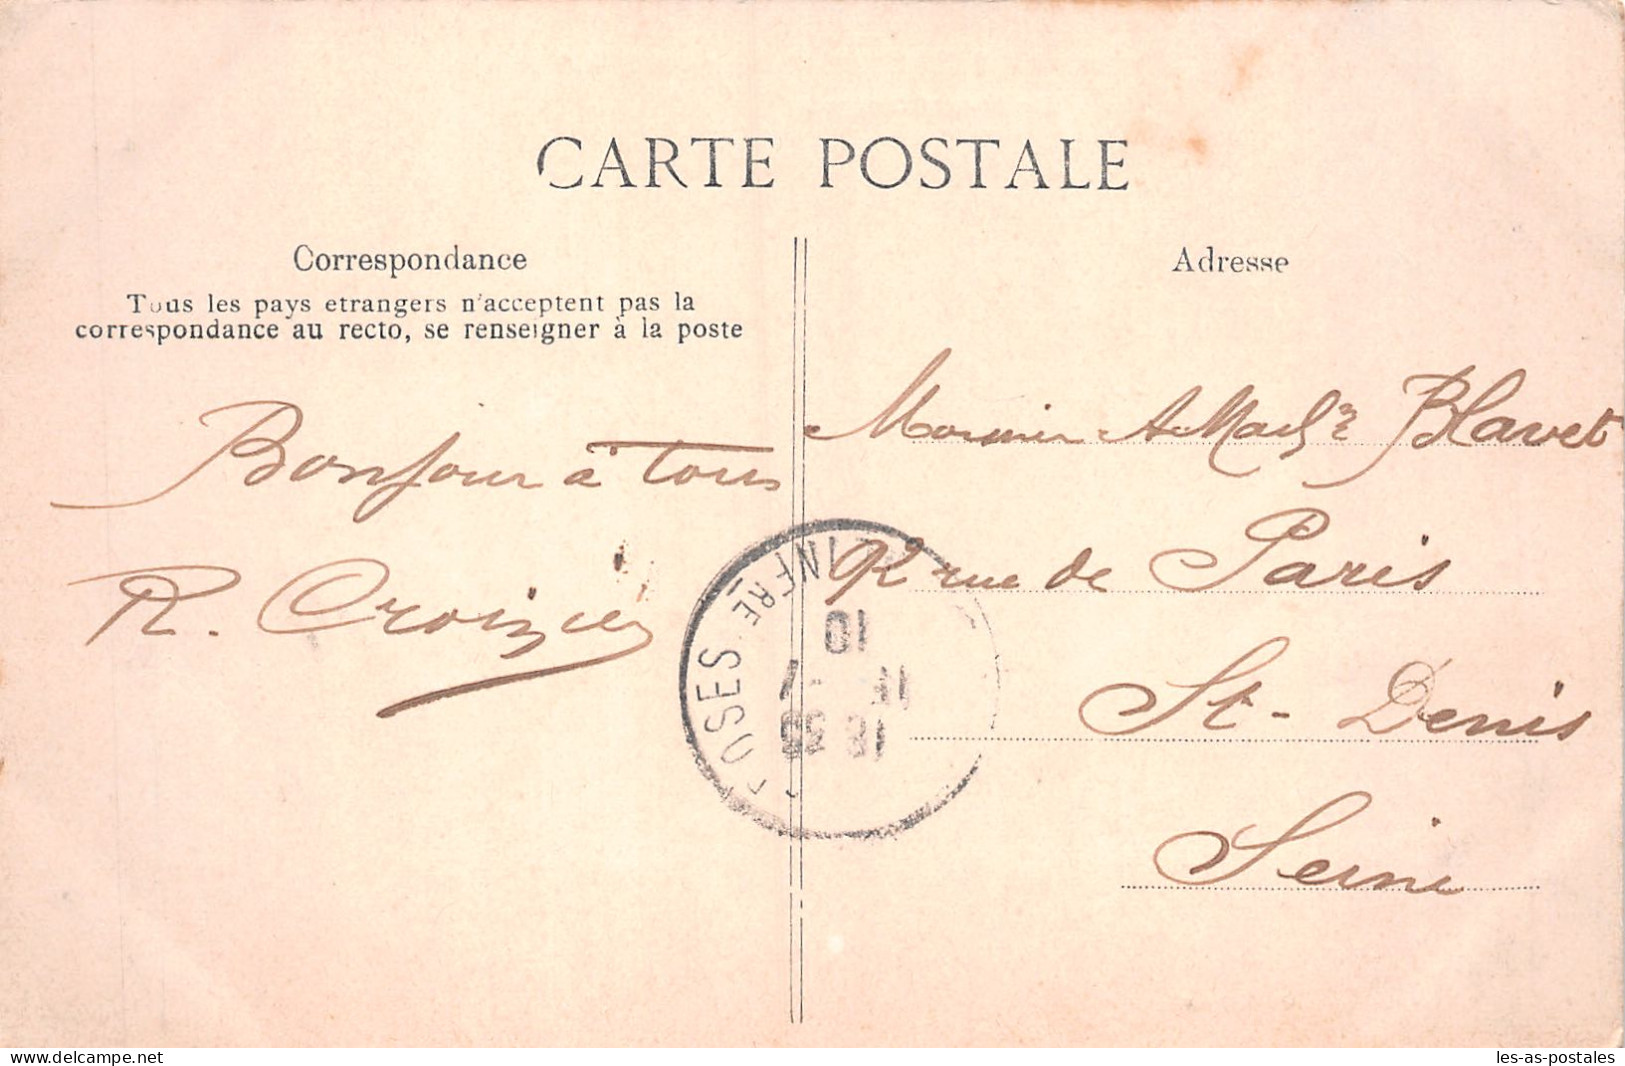 CARTE POSTALE
Correspondance
Tous les pays etrangers n'acceptent pas la
correspondance au recto, se renseigner à la poste
Bonjour à tous
R. Croizier
Adresse
Monsieur & Blavet
rue de Paris
St-Denis
Seine
OSES INFRE
10
delcampe.net
les-as-postales